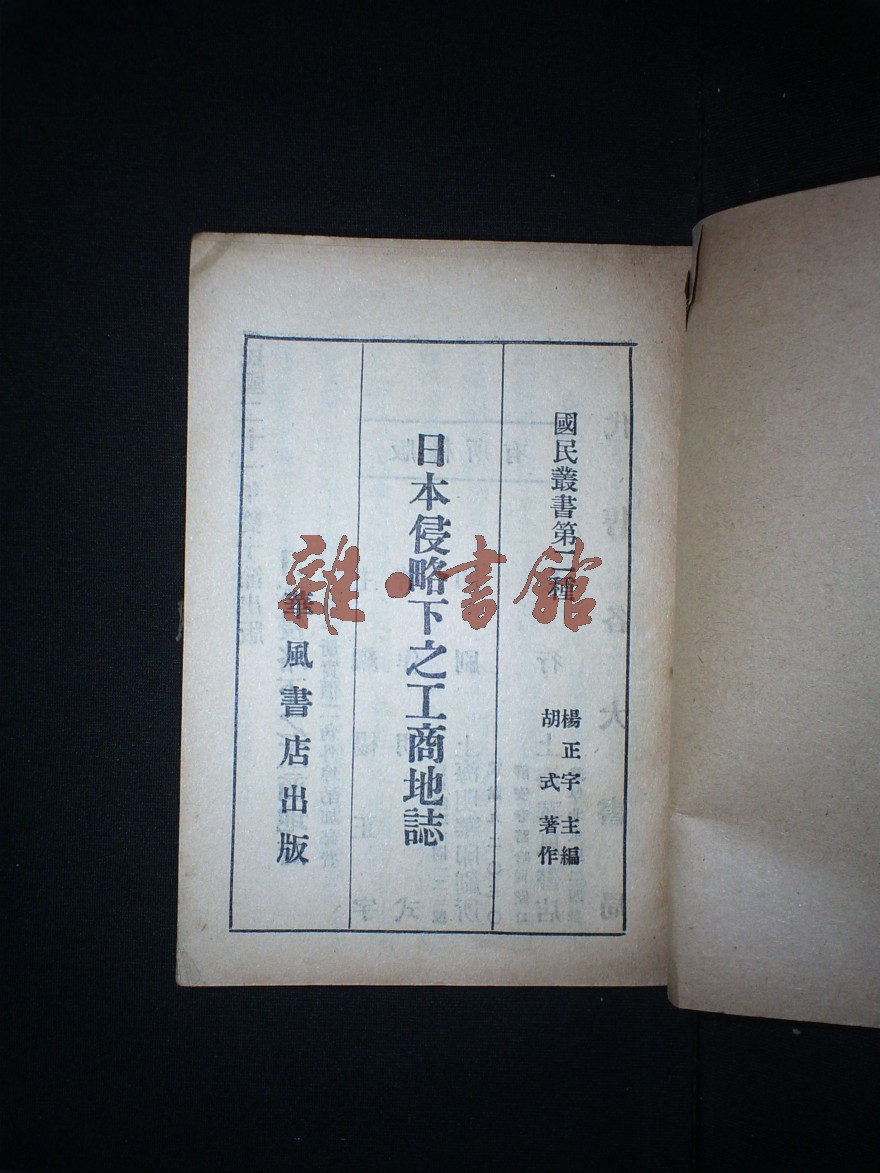 國民叢書第二種
楊正宇主編
胡式著作
日本侵略下之工商地誌
華風書店出版
雜·書館